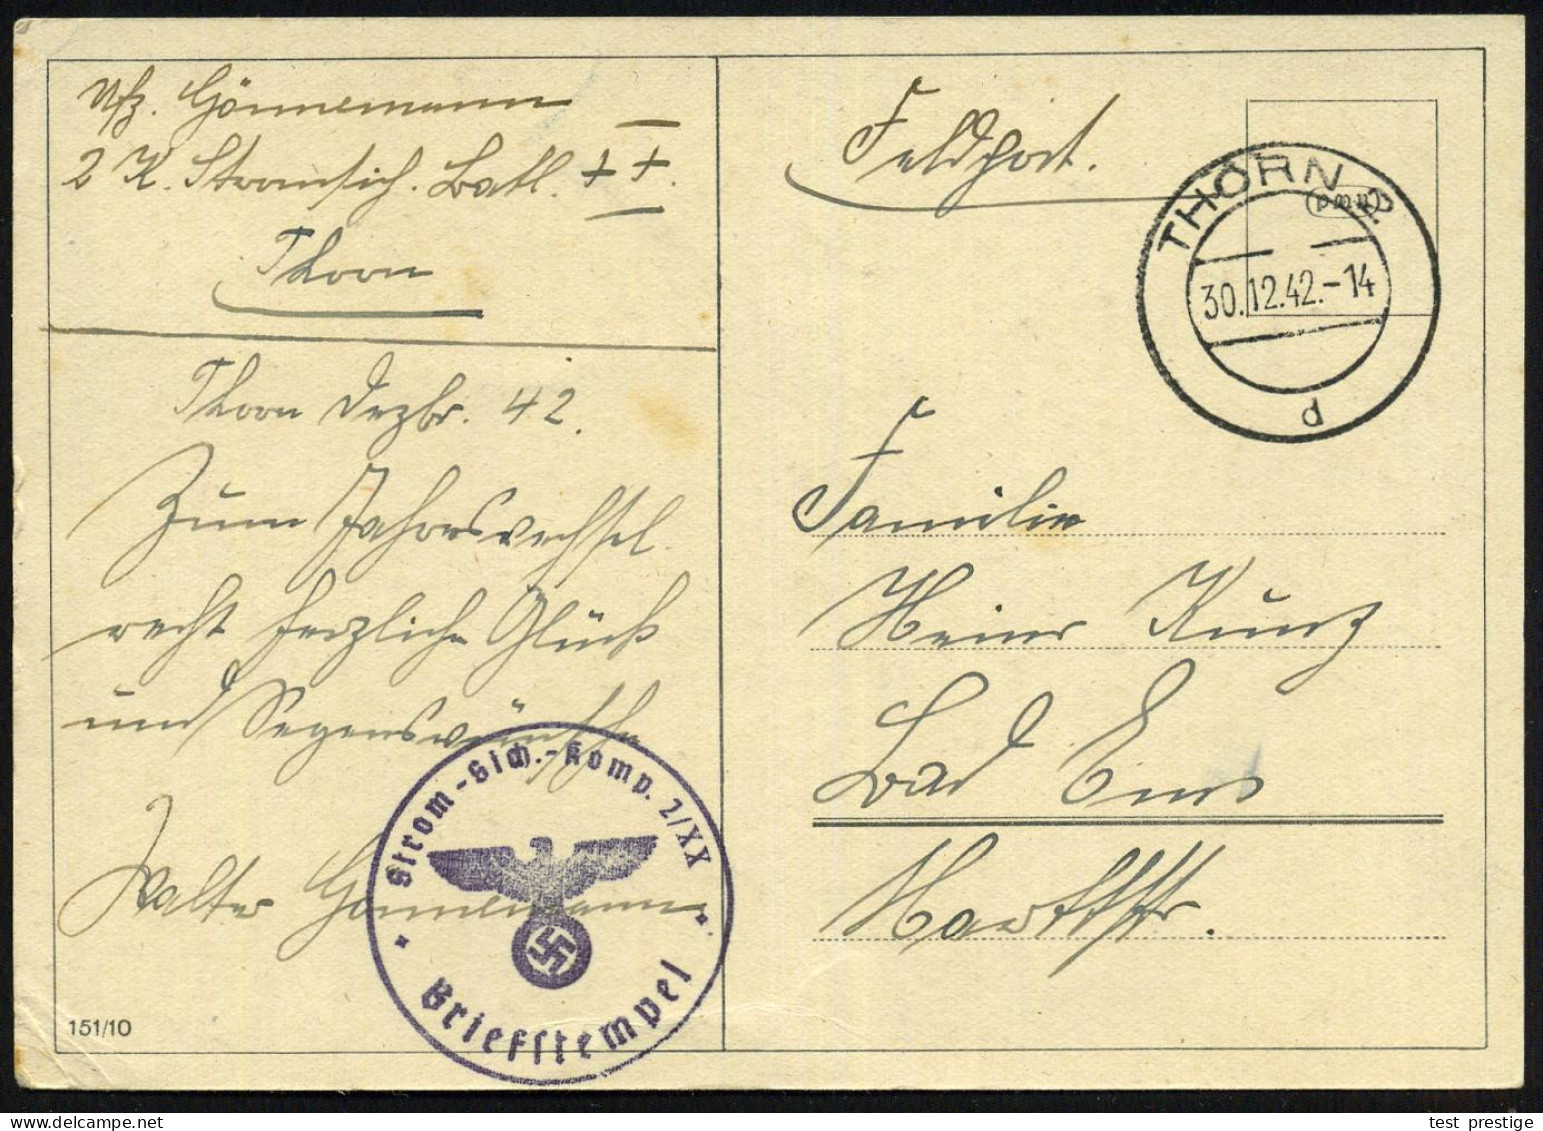 Uffz. Gönnemann
2 K. Stromsich. Batl. XX.
Thorn
Thorn Dezbr. 42.
Zum Jahreswechsel
recht herzliche Glück
und Segenswünsche
Walter Gönnemann
Strom-Sich.-Komp. 2/XX
Briefstempel
151/10
Feldpost.
THORN 2
(pmp)
30.12.42.-14
d
Familie
Heinr Kunz
Bad Ems
Marktstr.
test prestige